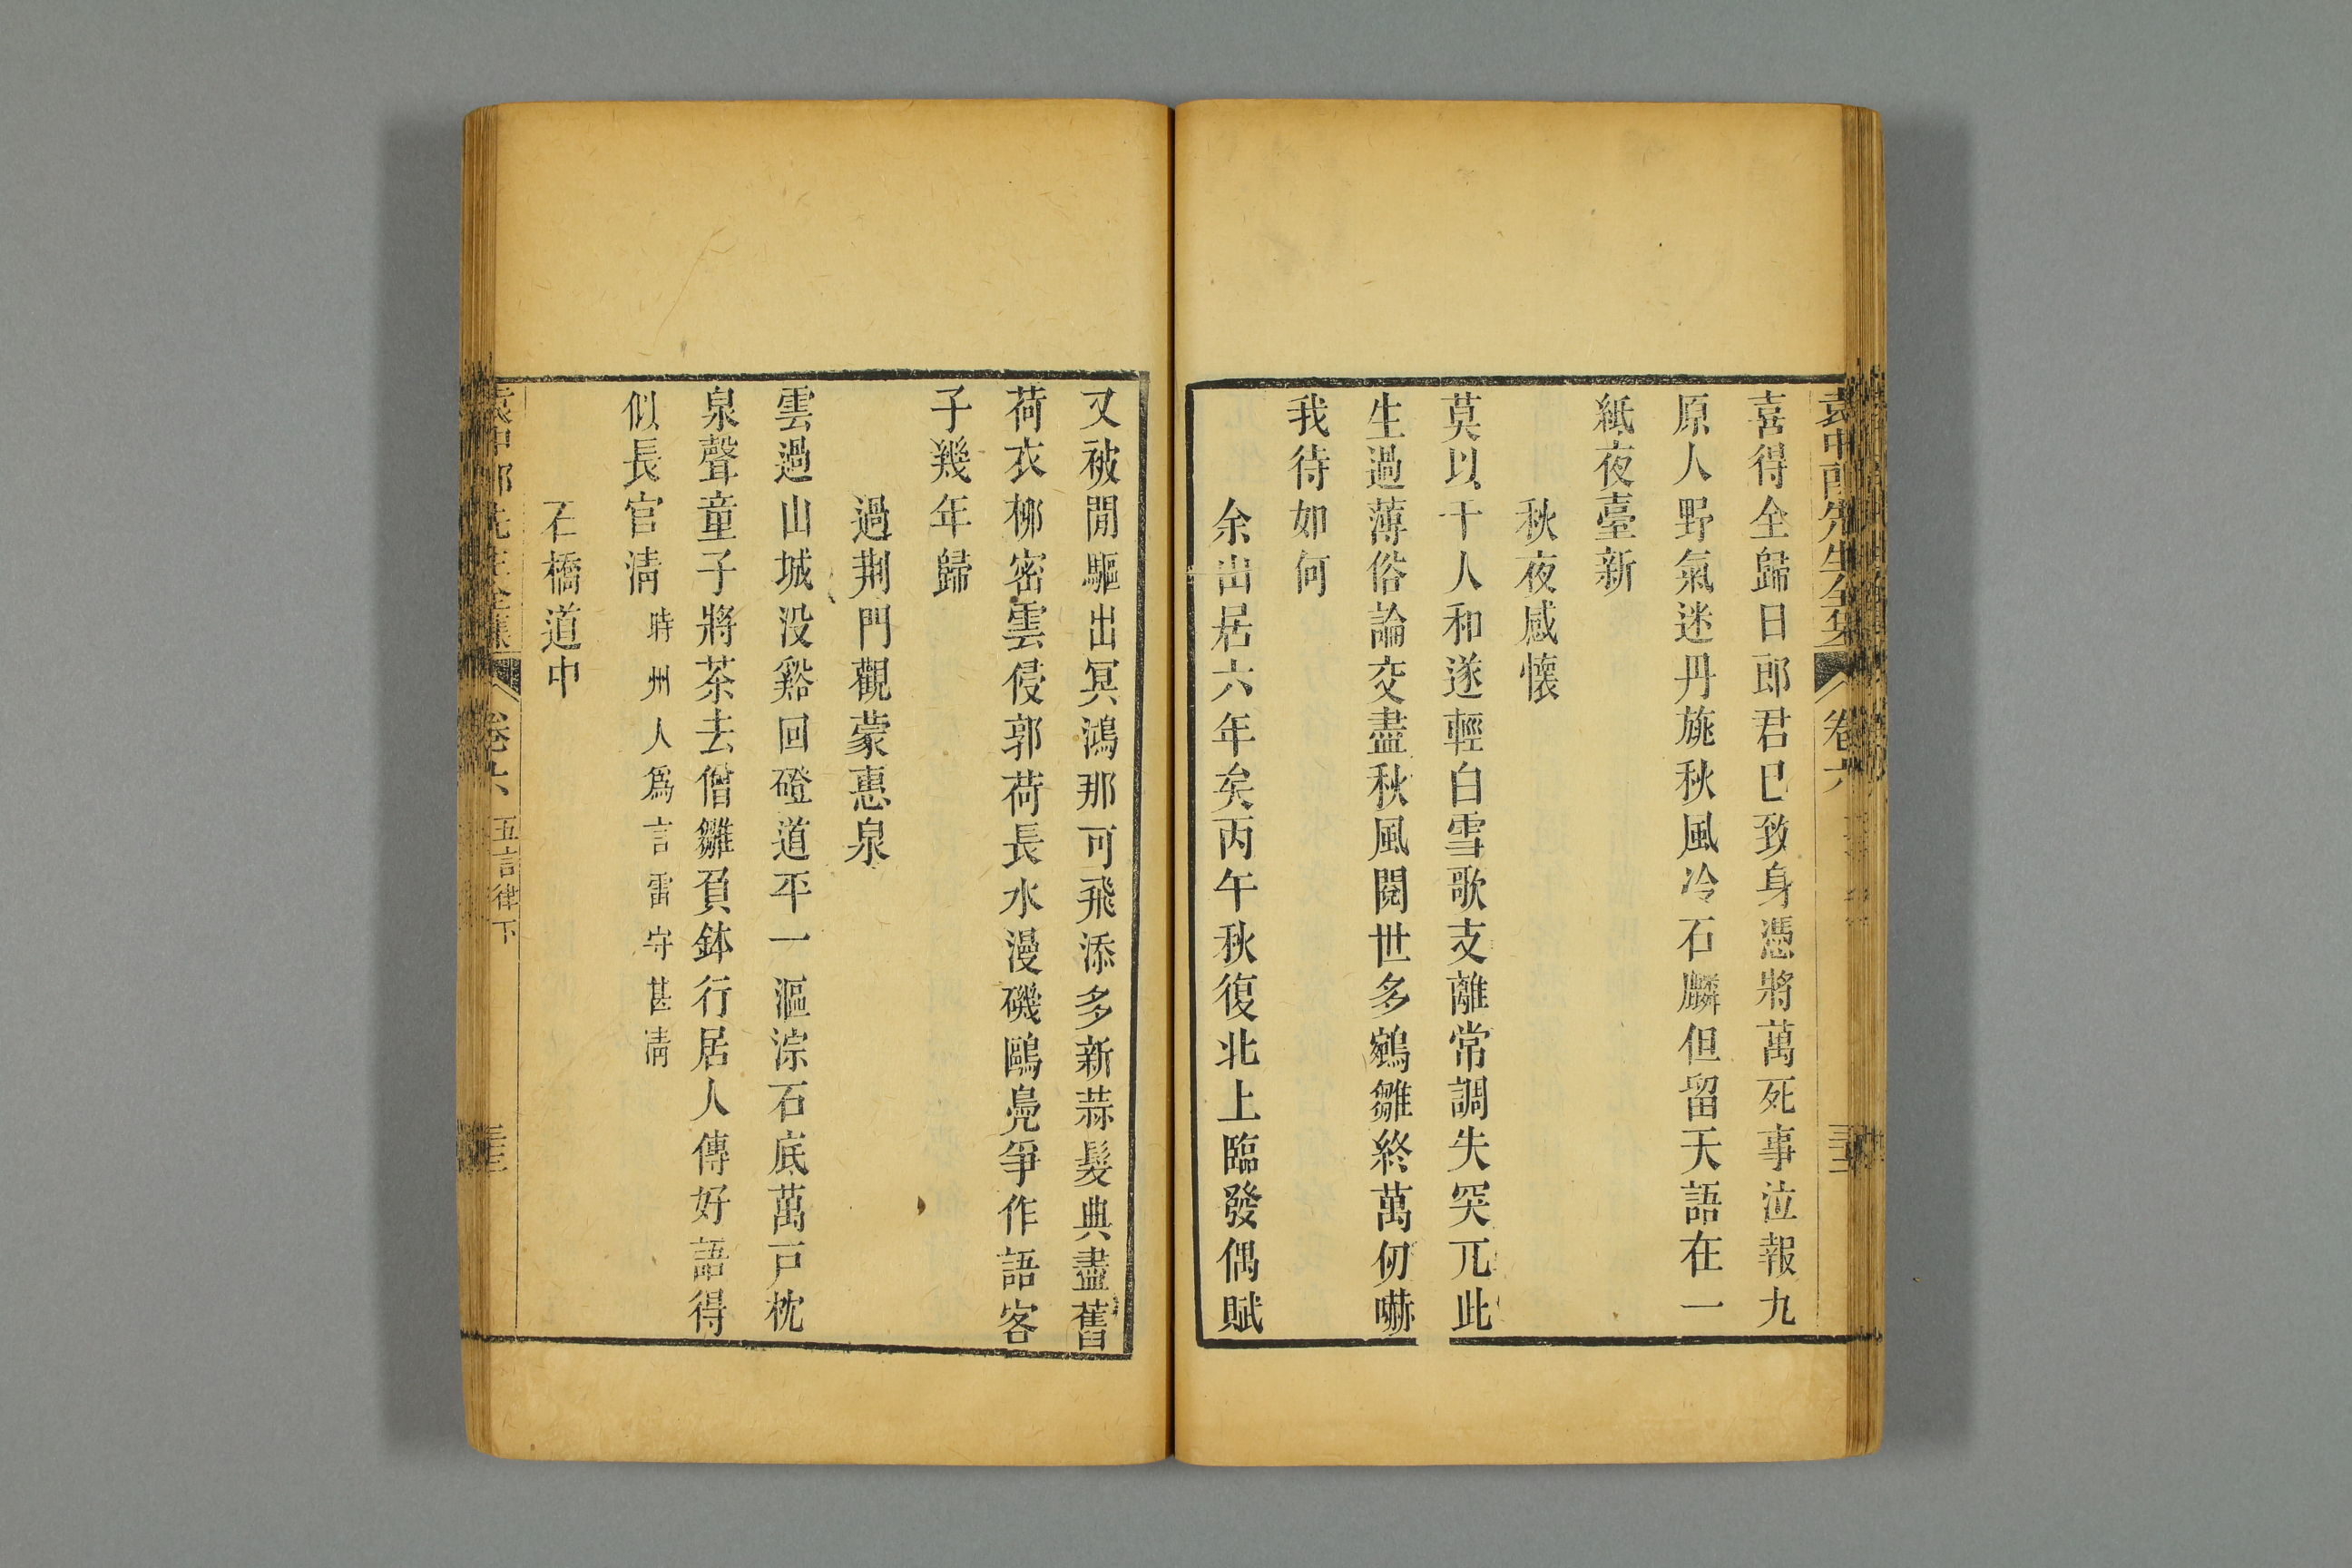 喜得全歸日郎君已致身憑將萬死事泣報九
原人野氣迷丹旐秋風冷石麟但留天語在一
紙夜臺新
秋夜感懷
莫以千人和遂輕白雪歌支離常調失突兀此
生過薄俗論交盡秋風閱世多鵷雛終萬仞嚇
我待如何
余出居六年矣丙午秋復北上臨發偶賦
又被閒驅出冥鴻那可飛添多新蒜髮典盡舊
荷衣柳密雲侵郭荷長水漫磯鷗鳧爭作語客
子幾年歸
過荆門觀蒙惠泉
雲過山城没谿回磴道平一漚淙石底萬戸枕
泉聲童子將茶去僧雛負鉢行居人傳好語得
似長官淸 時州人爲言雷守甚淸
石橋道中
卷六 五言律下